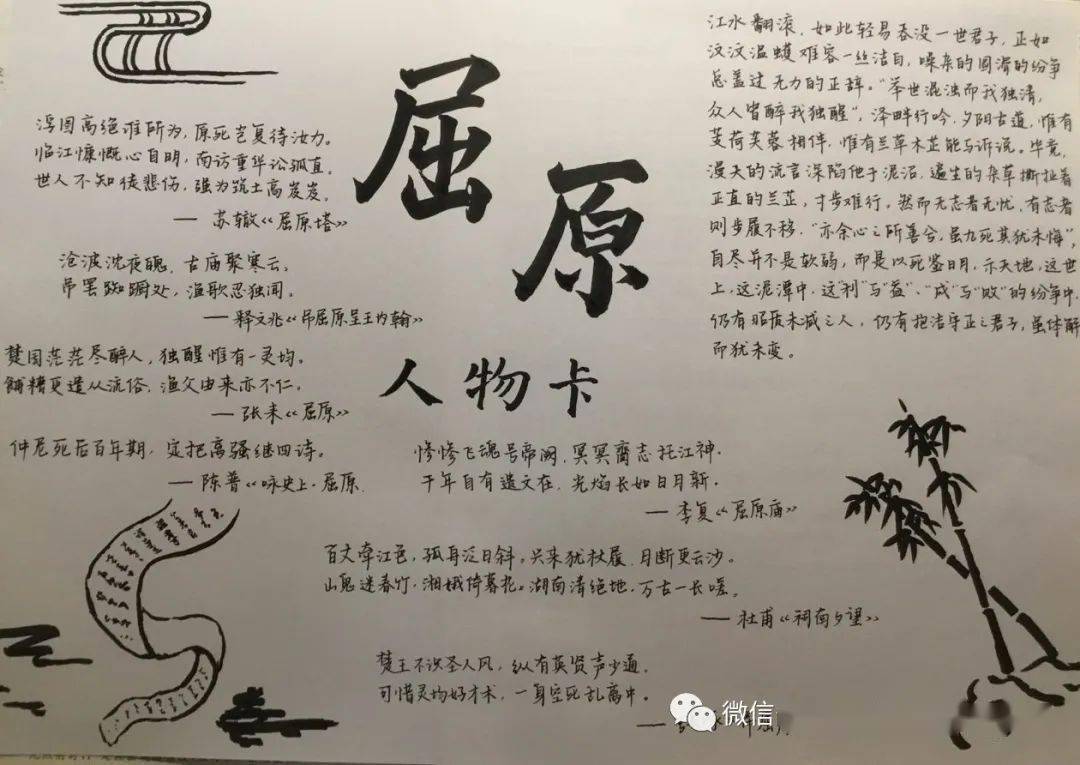 屈
原
人物卡
浮图高绝谁所为，原死岂复待汝力。
临江慷慨心自明，南访重华讼孤直。
世人不知徒悲伤，强为筑土高岌岌。
— 苏辙《屈原塔》
沧波沈夜魄，古庙聚寒云。
吊罢踟蹰处，渔歌忍独闻。
— 释文兆《吊屈原呈王内翰》
楚国茫茫尽醉人，独醒惟有一灵均。
餔糟更遣从流俗，渔父由来亦不仁。
— 张耒《屈原》
仲尼死后百年期，定把高强继四诗。
— 陈普《咏史上·屈原
惨惨飞魂号帝阍，冥冥赍志托江神。
千年自有遗文在，光焰长如日月新。
— 李复《屈原庙》
百丈牵江色，孤舟泛日斜。兴来犹杖履，目断更云沙。
山鬼迷春竹，湘娥倚暮花。湖南清绝地，万古一长嗟。
— 杜甫《祠南夕望》
楚王不识圣人风，纵有英贤声少通。
可惜灵均好才术，一身空死乱离中。
江水翻滚，如此轻易吞没一世君子，正如
汶汶温蠖难容一丝洁白，嘈杂的圆滑的纷争
总盖过无力的正辞。“举世混浊而我独清，
众人皆醉我独醒”，泽畔行吟，夕阴古道，惟有
芰荷芙蓉相伴，惟有兰草木芷能与诉说。毕竟，
漫天的流言深陷他于泥沼，遍生的杂草撕扯着
正直的兰芷，寸步难行，然而无志者无忧，有志者
则步履不移，“亦余心之所善兮，虽九死其犹未悔”，
自尽并不是软弱，而是以死鉴日月，示天地，这世
上，这泥潭中，这“利”与“益”、“成”与“败”的纷争中，
仍有昭质未减之人，仍有抱洁守正之君子，虽体解
而犹未变。
微信